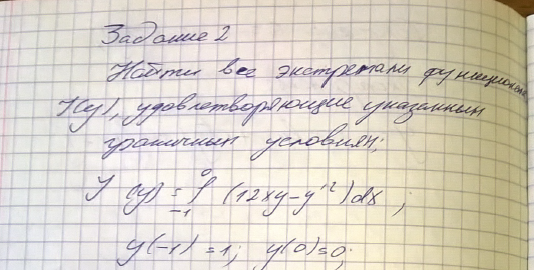 Задание 2
Найти все экстремали функционала
Y(y), удовлетворяющие указанным
граничным условиям;
Y(y) = ∫₋₁⁰ (12xy - y'²)dx ;
y(-1) = 1; y(0) = 0;